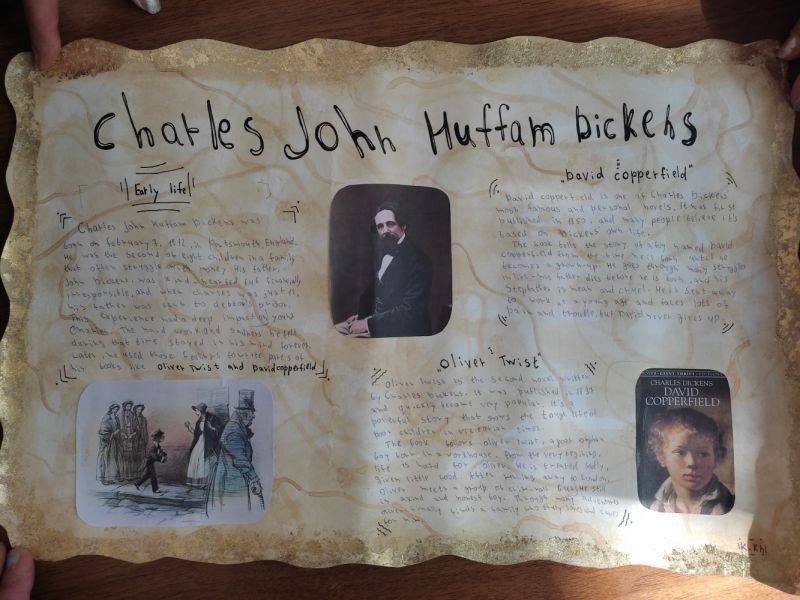 Charles John Huffam Dickens
Early life
Charles John Huffam Dickens was
born on february 7, 1812, in Portsmouth, England.
He was the second of eight children in a family
that often struggle with money. His father,
John Dickens, was kind hearted but finacially
irresponsible, and when Charles was just 12,
his father was sent to debtors' prison.
This experience had a deep impact on young
Charles. The hard work and sadness he felt
during that time stayed in his mind forever.
Later, he used those feelings to write parts of
his books like Oliver Twist and David copperfield
„David copperfield"
David copperfield is one of Charles Dickens
most famous and personal novels. It was first
published in 1850, and many people believe it's
based on Dickens own life.
The book tells the story of a boy named David
copperfield from the time he is born until he
becomes a grown-up. He goes through many struggles
his father dies before he is born, and his
Stepfather is mean and cruel. He is sent away
to work at a young age and faces lots of
pain and trouble, but David never gives up.
„Oliver Twist"
Oliver Twist is the second novel written
by Charles Dickens. It was published in
and quickly became very popular. It's a
powerful story that shows the tough life of
poor children in victorian times.
The book follows oliver Twist, a poor orphan
boy born in a workhouse. From the very begining,
life is hard for oliver. He is treated badly,
given little food. After running away to London,
oliver meets a group of criminals. But he still
a kind and honest boy. Through many adventures
oliver finally finds a family who truly loves and cares
for him.
GIANT THRIFT
CHARLES DICKENS
DAVID
COPPERFIELD